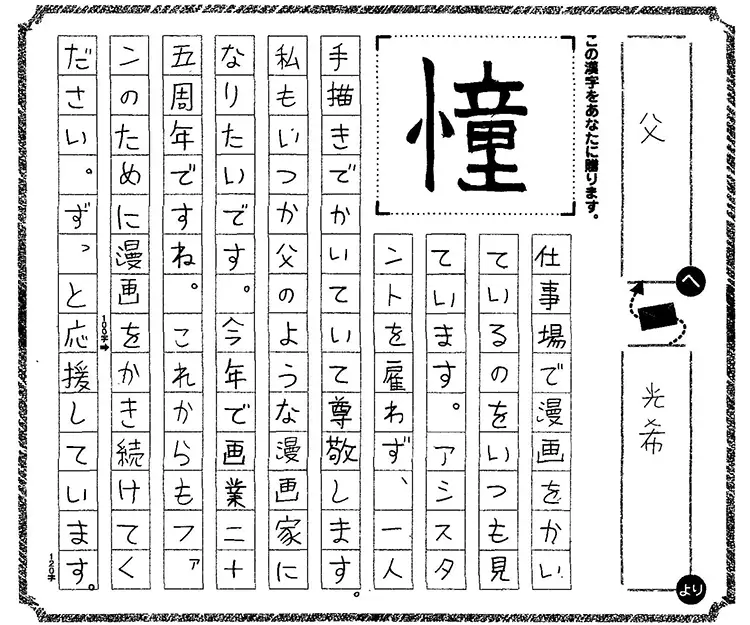 父
へ
光希
より
この漢字をあなたに贈ります。
憧
仕事場で漫画をかい
ているのをいつも見
ています。アシスタ
ントを雇わず、一人
手描きでかいていて尊敬します。
私もいつか父のような漫画家に
なりたいです。今年で画業二十
五周年ですね。これからもファ
ンのために漫画をかき続けてく
ださい。ずっと応援しています。
100字
120字